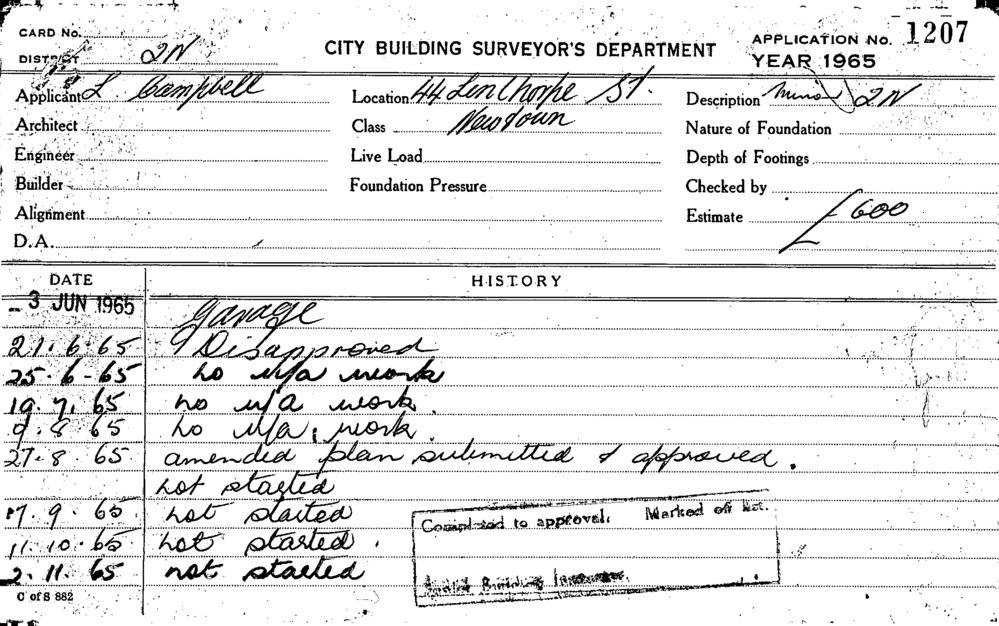 CARD No.
DISTRICT 2N
CITY BUILDING SURVEYOR'S DEPARTMENT
APPLICATION No. 1207
YEAR 1965
Applicant L. Campbell
Location 44 Lenthorpe St.
Description Minor 2N
Architect
Class Newtown
Nature of Foundation
Engineer
Live Load
Depth of Footings
Builder
Foundation Pressure
Checked by
Alignment
Estimate £600
D.A.
DATE HISTORY
3 JUN 1965 Garage
21.6.65 Disapproved
25.6-65 no u/a work
19.7.65 no u/a work.
9.8.65 no u/a work.
27.8.65 amended plan submitted & approved.
not started
17.9.65 not started
11.10.65 not started.
2.11.65 not started
Completed to approval. Marked off list.
Building Inspector.
C of S 882